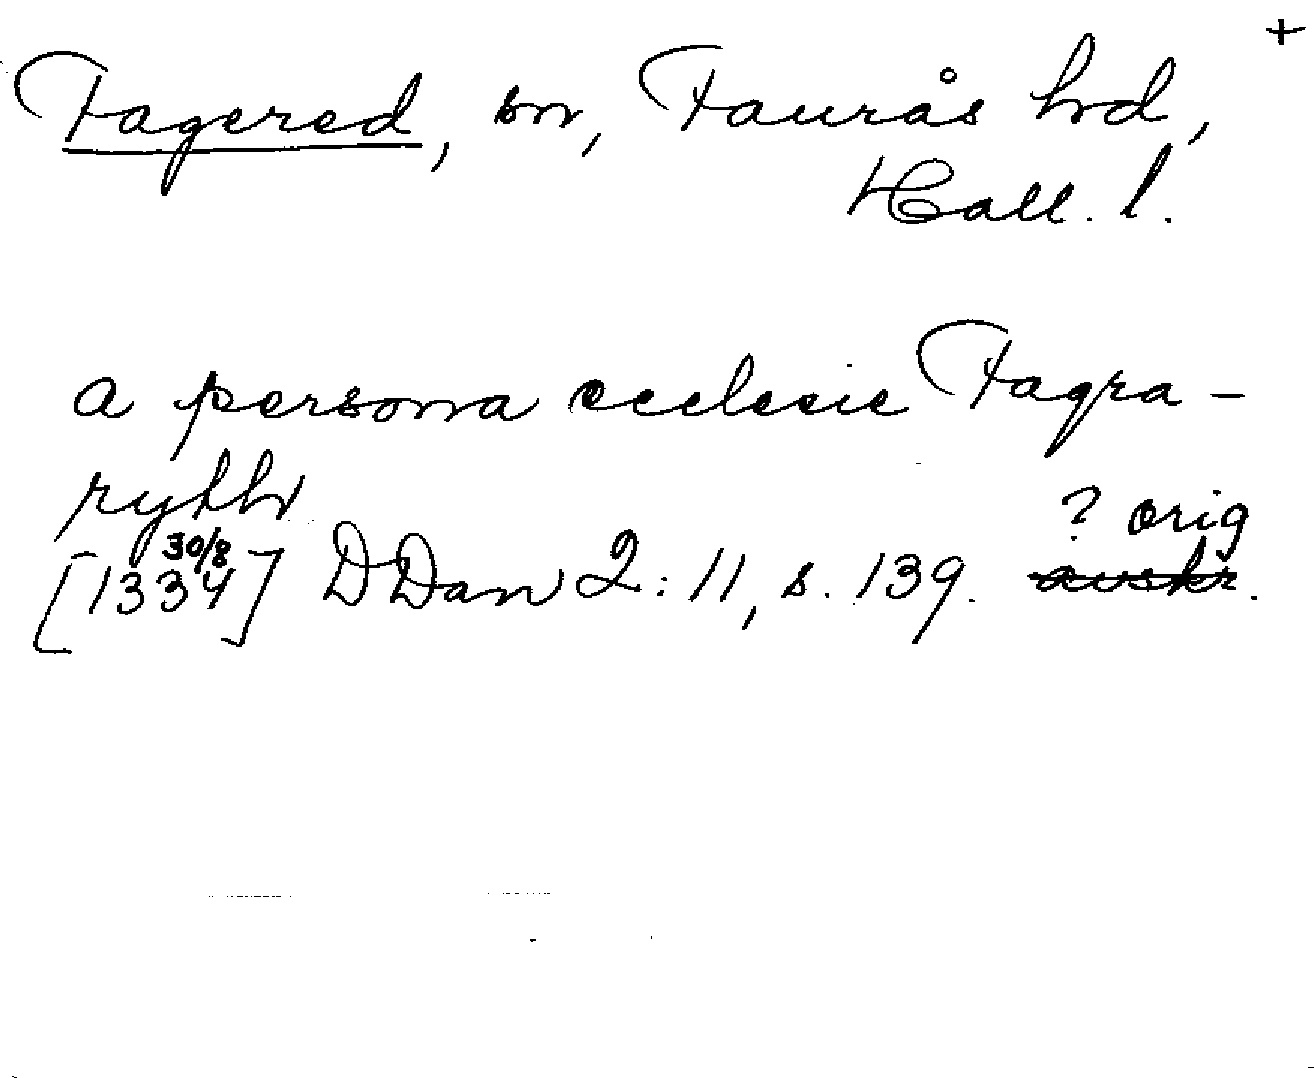 +
Fagered, sn, Faurås hd,
Hall. l.
a persona ecclesie Fagra-
rythh
? orig
30/8
[1334] DDan 2:11, s. 139. avskr.